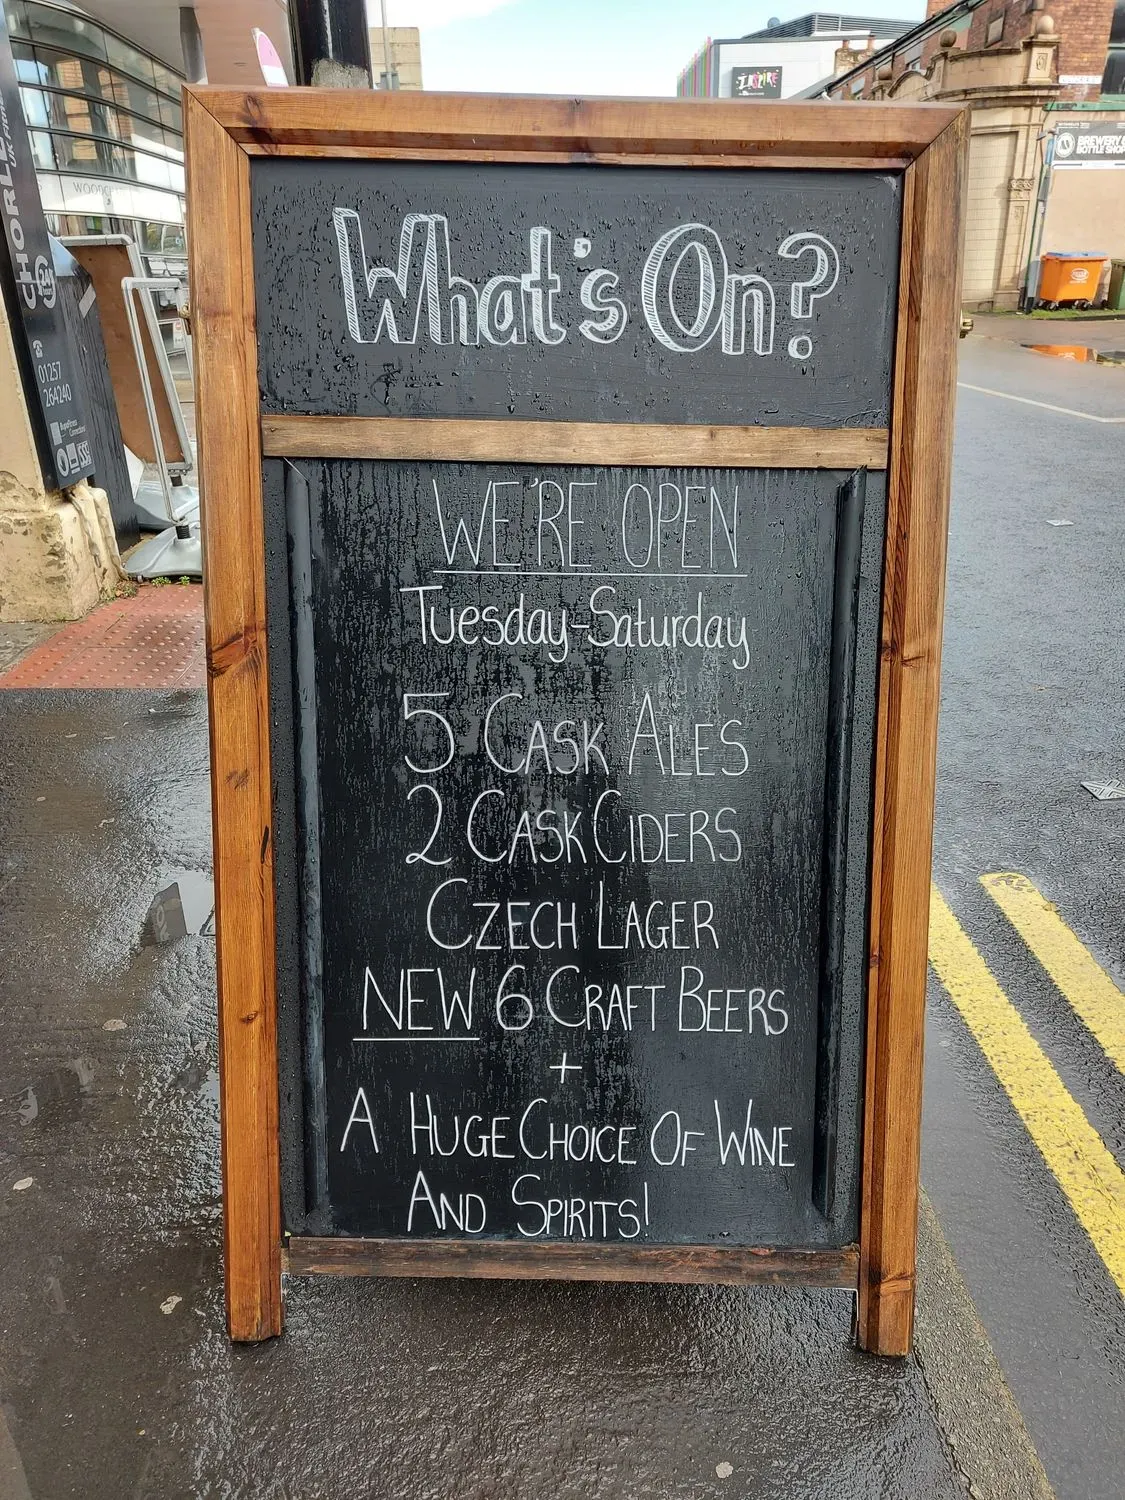 What's On?
WE'RE OPEN
Tuesday-Saturday
5 CASK ALES
2 CASK CIDERS
CZECH LAGER
NEW 6 CRAFT BEERS
+
A HUGE CHOICE OF WINE
AND SPIRITS!
INSPIRE
BREWERY &
BOTTLE SHOP
01257
264240